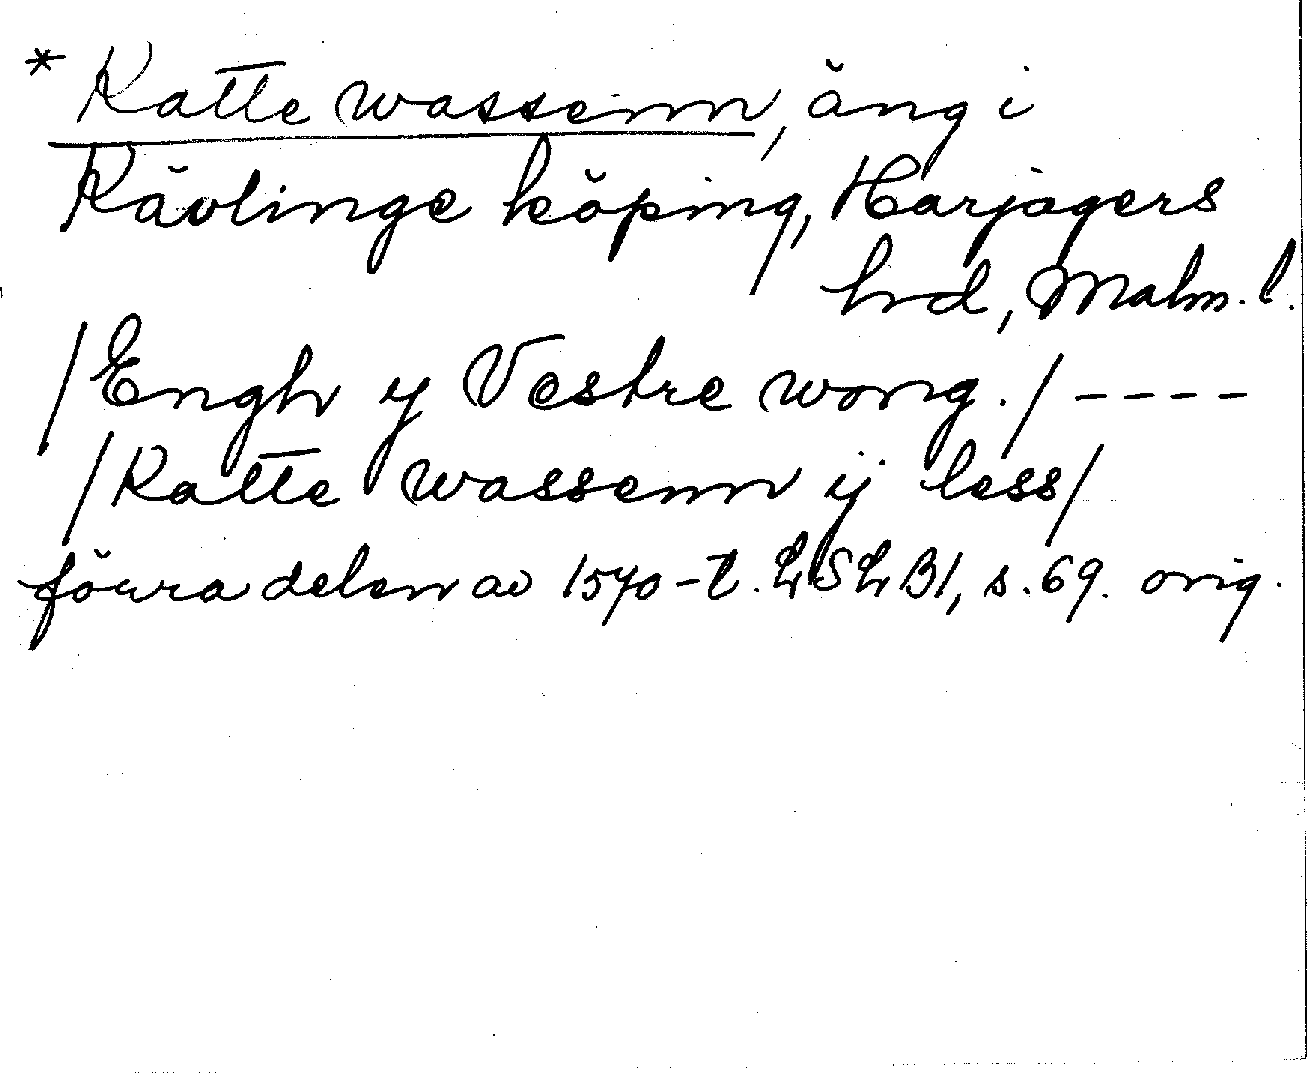 * Katte wassenn, äng i
Kävlinge köping, Harjagers
hrd, Malm. l.
/Engh y Vestre wong./ ----
/Katte wassenn ij less/
förra delen av 1570-t. LSLB1, s. 69. orig.